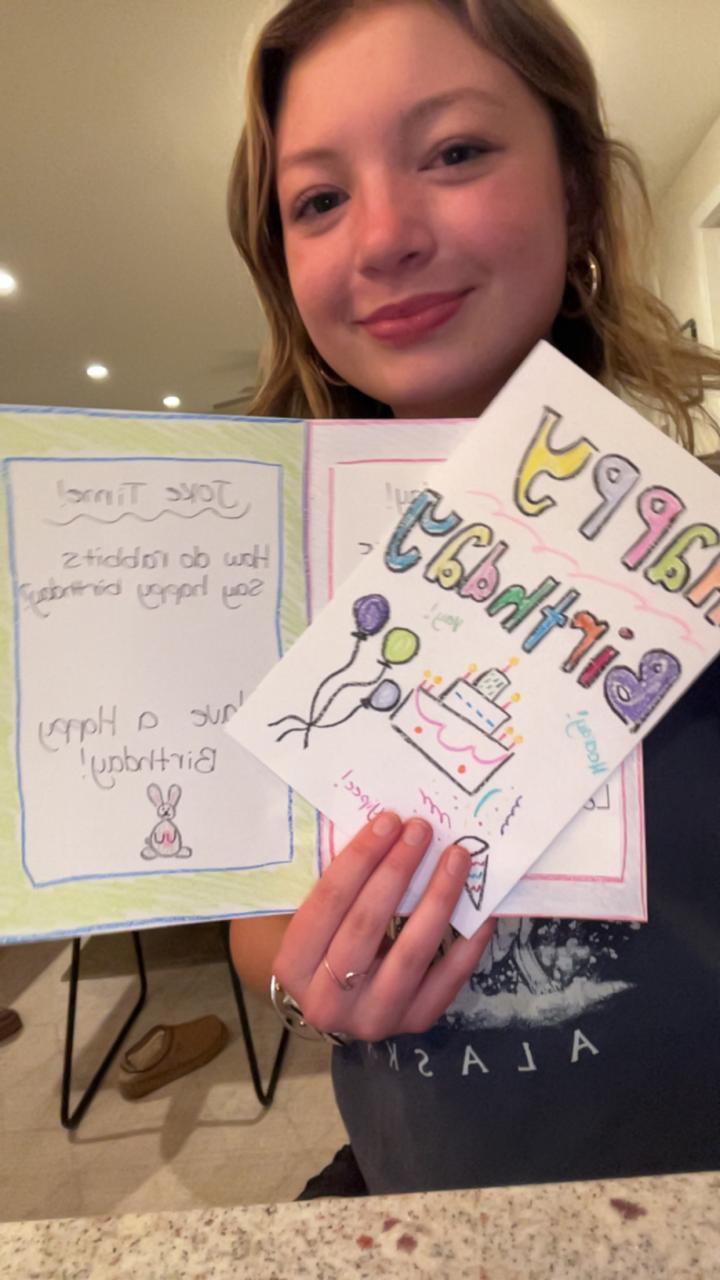 Joke Time!
How do rabbits
say happy birthday?
have a Happy
Birthday!
Happy
Birthday
Yay!
Hooray!
ALASK